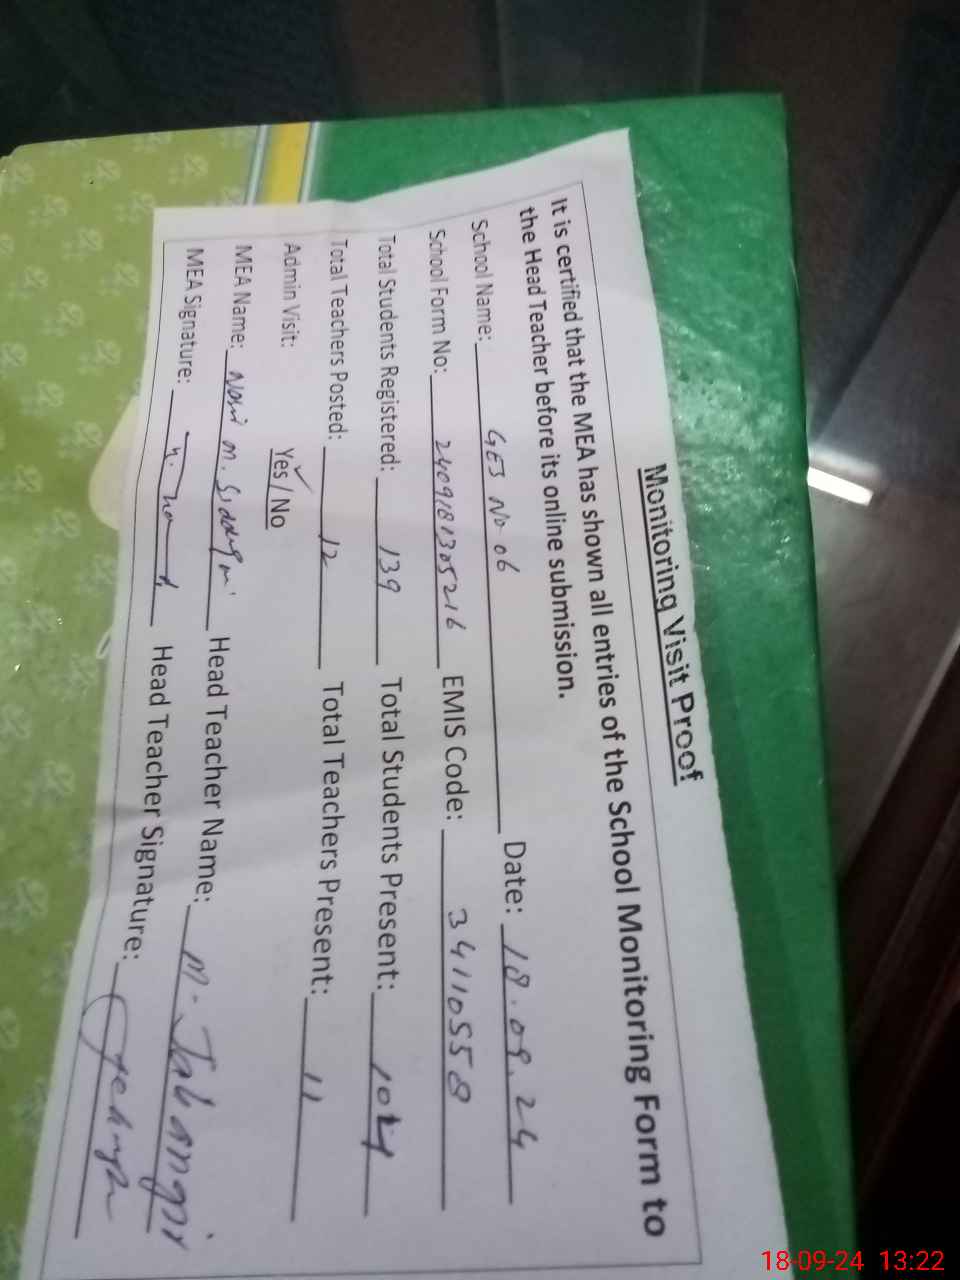 Monitoring Visit Proof
It is certified that the MEA has shown all entries of the School Monitoring Form to
the Head Teacher before its online submission.
School Name: GES No 06 Date: 18.09.24
School Form No: 2409181305216 EMIS Code: 34110558
Total Students Registered: 139 Total Students Present: 104
Total Teachers Posted: 12 Total Teachers Present: 11
Admin Visit: Yes / No
MEA Name: M. Head Teacher Name: M. Jahangir
MEA Signature: Head Teacher Signature:
18-09-24 13:22